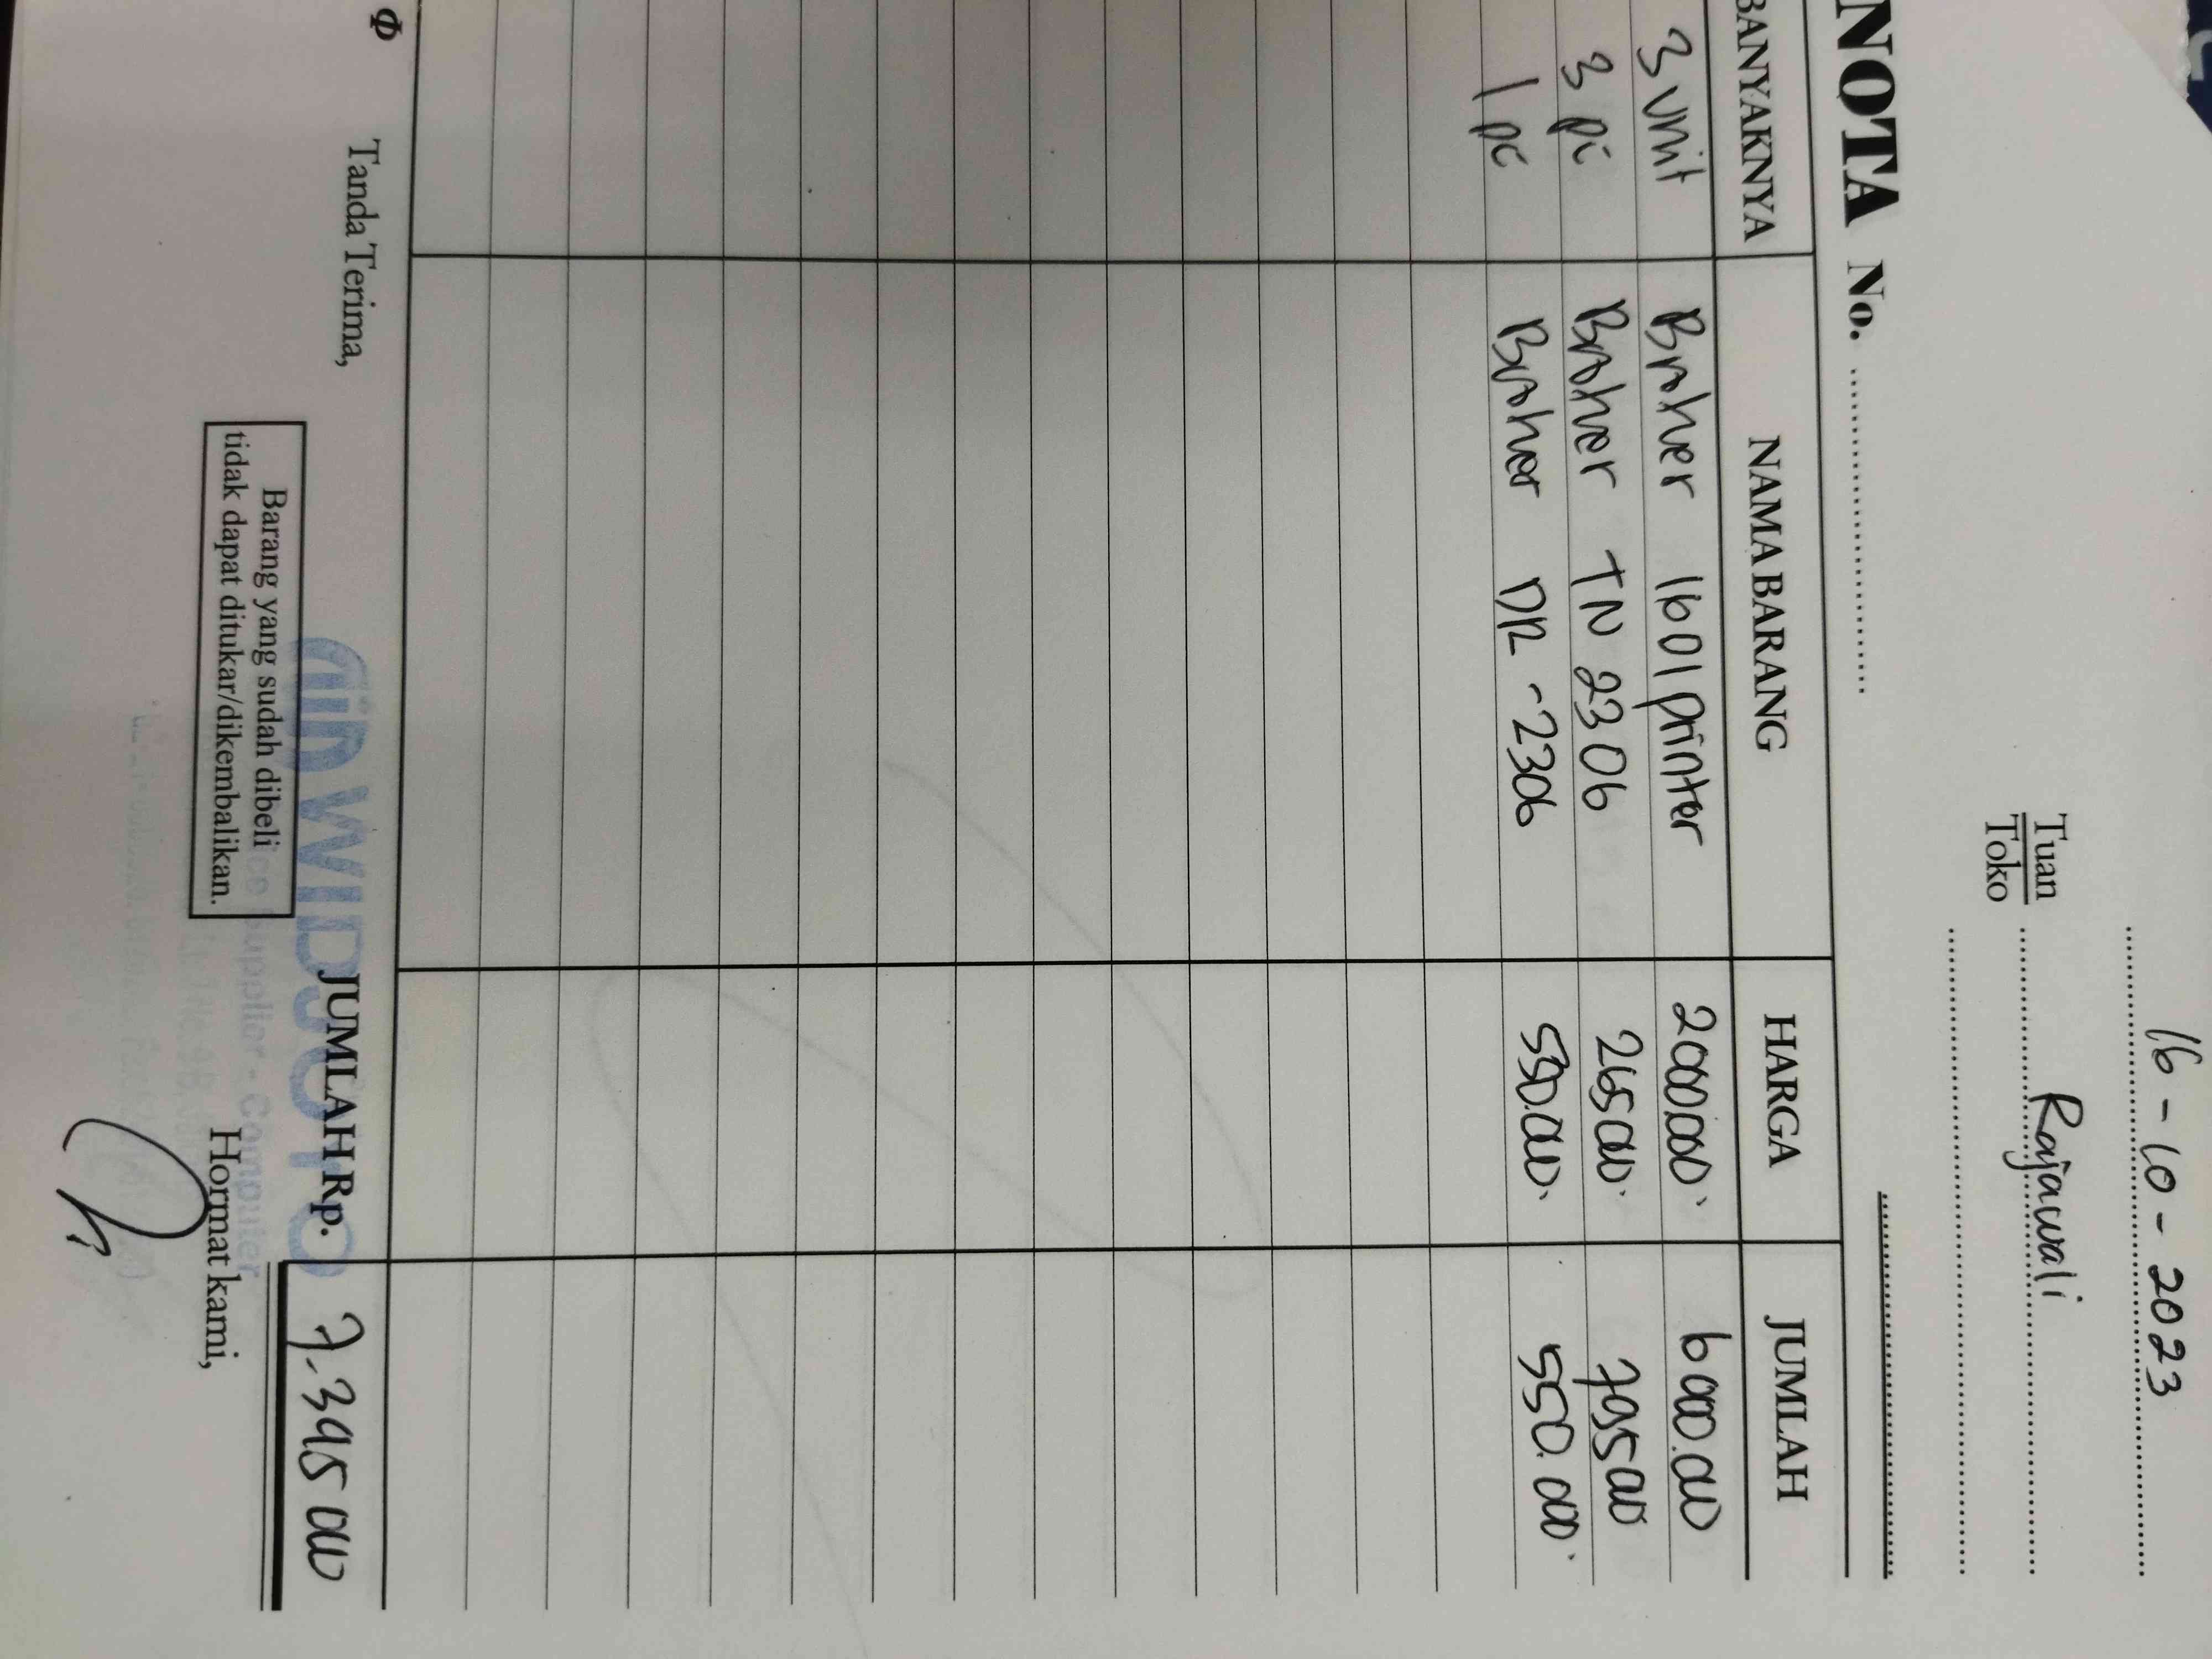 16-10-2023
Tuan
Toko
Rajawali
NOTA No.
BANYAKNYA NAMA BARANG HARGA JUMLAH
3 unit Brother 1601 printer 2000.000. 6000.000
3 pc Brother TN 2306 265000. 795000
1 pc Brother DR-2306 550.000. 550.000.
JUMLAH Rp. 7.395000
WIDJOJO
Supplier - Computer
Tanda Terima,
Barang yang sudah dibeli
tidak dapat ditukar/dikembalikan.
Hormat kami,